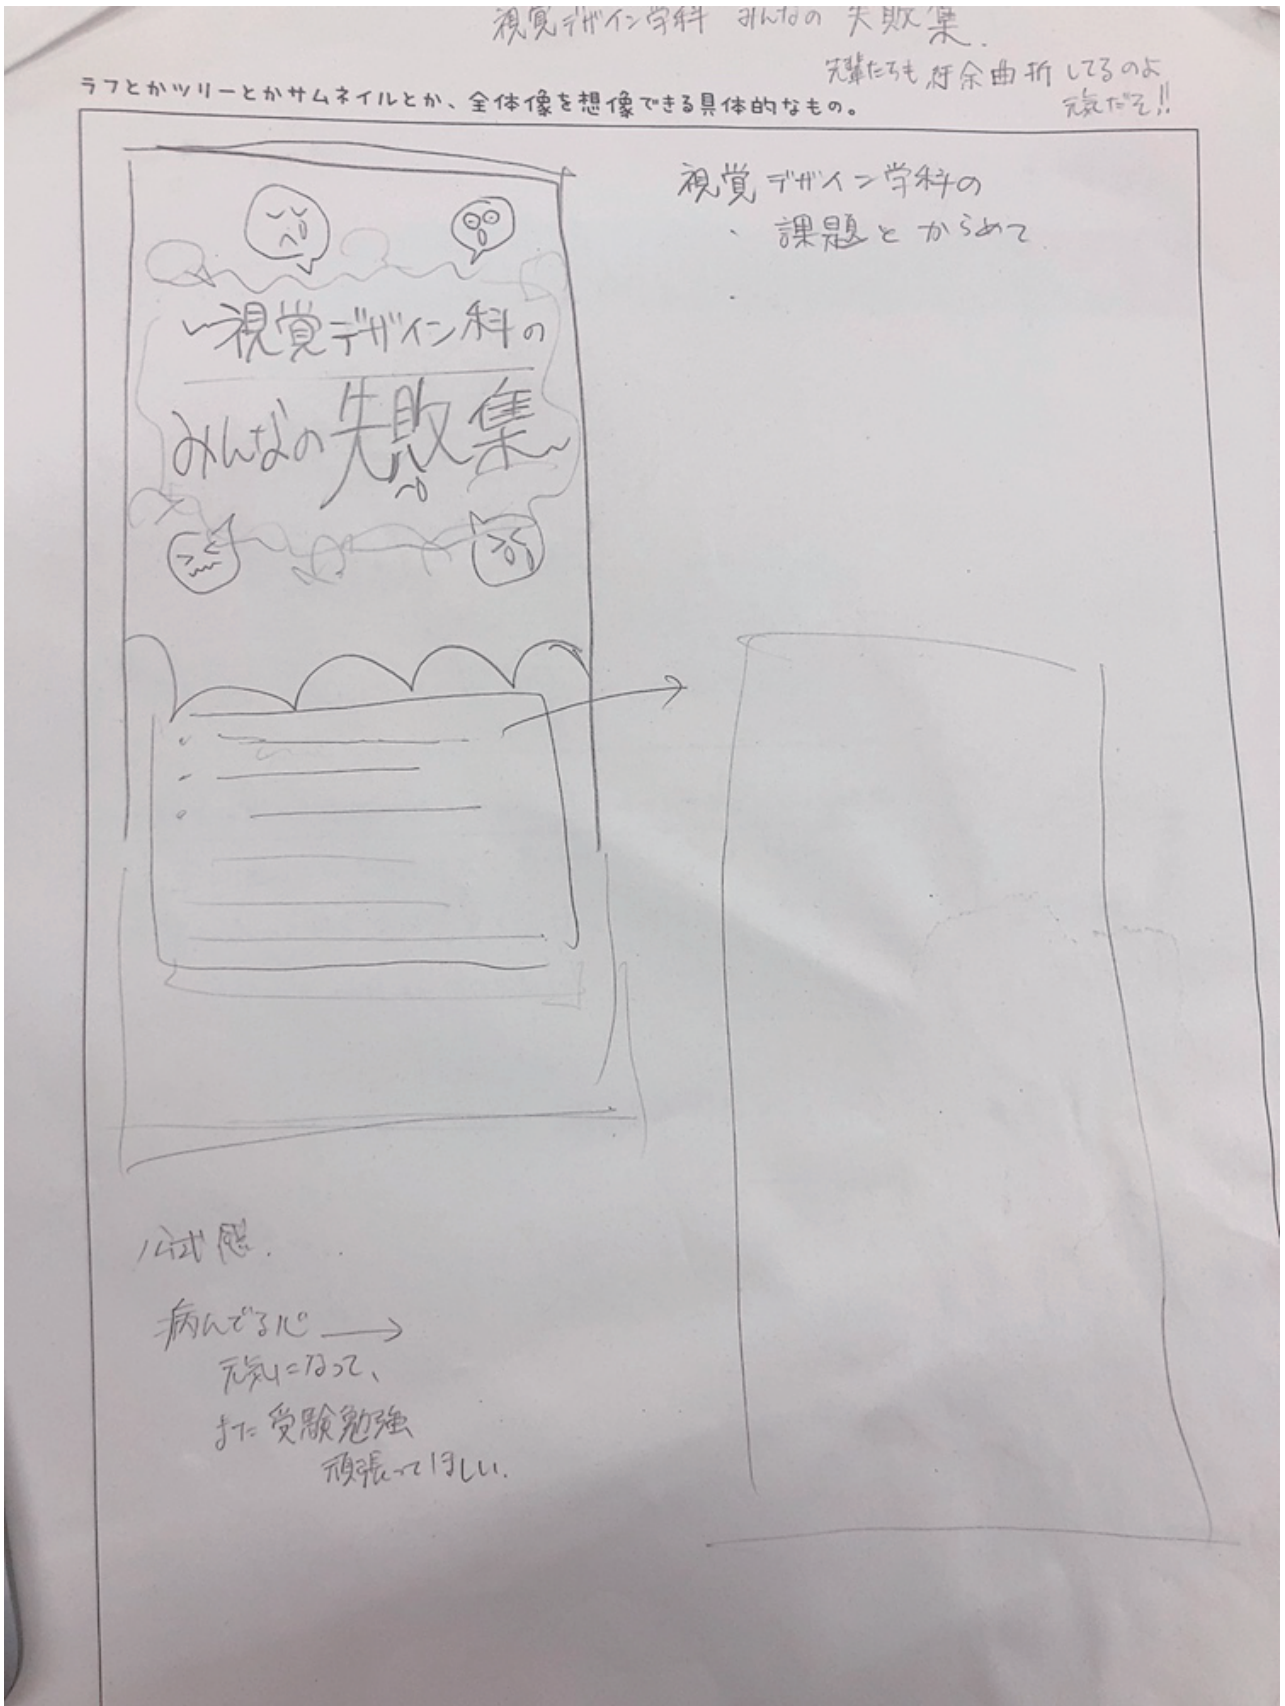 視覚デザイン学科 みんなの 失敗集.
先輩たちも 紆余曲折 してるのよ
元気だそ!!
ラフとかツリーとかサムネイルとか、全体像を想像できる具体的なもの。
視覚デザイン学科の
・ 課題と からめて
・
〜視覚デザイン科の
みんなの失敗集〜
公式感.
病んでる心 →
元気になって、
また 受験勉強
頑張ってほしい.